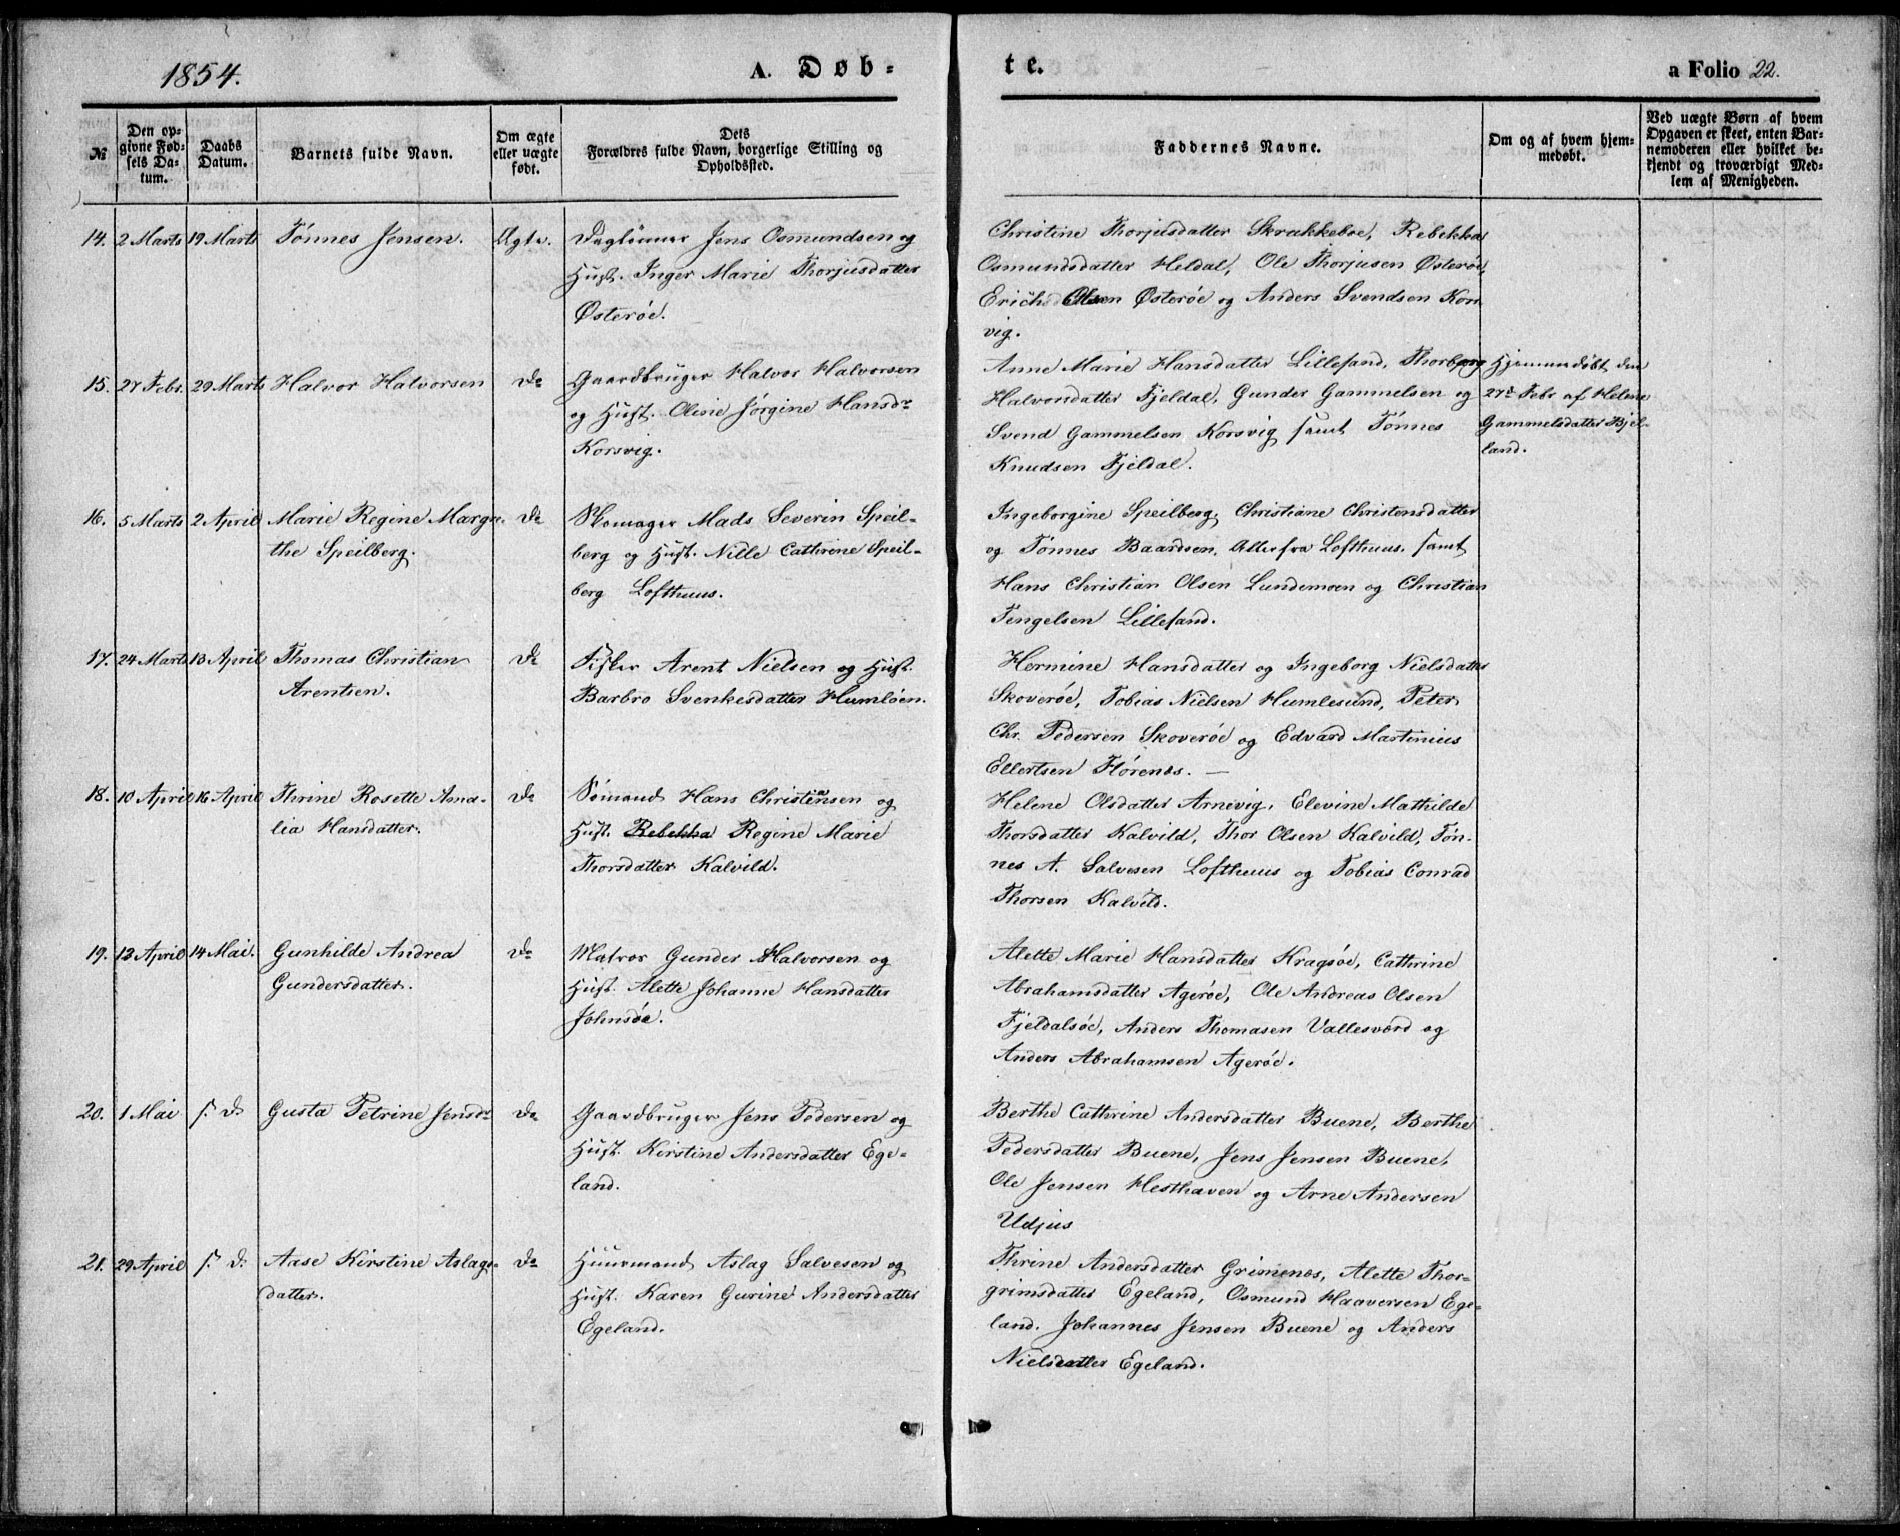 1854.
A. Døb-
te.
a Folio 22.
№
Den op-
givne Fød-
sels Da-
tum.
Daabs
Datum.
Barnets fulde Navn.
Om ægte
eller uægte
født.
Dets
Forældres fulde Navn, borgerlige Stilling og
Opholdssted.
Faddernes Navne.
Om og af hvem hjem-
medøbt.
Ved uægte Børn af hvem
Opgaven er skeet, enten Bar-
nemoderen eller hvilket be-
kjendt og troværdigt Med-
lem af Menigheden.
14. 2 Marts 19 Marts Tønnes Jensen. Ægte. Daglønner Jens Osmundsen og
Hust. Inger Marie Thorjusdatter
Østerøe.
Christine Thorjusdatter Skrakkeboe, Rebekka
Osmundsdatter Heldal, Ole Thorjusen Østerøe,
Erich Olsen Østerøe og Anders Svendsen Kors
vig.
15. 27 Febr. 29 Marts Halvor Halvorsen do Gaardbruger Halvor Halvorsen
og Hust. Oline Jørgine Hansdr
Korsvig.
Anne Marie Hansdatter Lillesand, Thorborg
Halvorsdatter Fjeldal, Gunder Gammelsen og
Svend Gammelsen Korsvig samt Tønnes
Knudsen Fjeldal.
Hjemmedøbt den
27d Febr af Helene
Gammelsdatter Bjel-
land.
16. 5 Marts 2 April Marie Regine Margre-
the Speilberg. do Skomager Mads Severin Speil-
berg og Hust. Nille Cathrine Speil-
berg Lofthuus.
Ingeborgine Speilberg, Christiane Christensdatter
og Tønnes Baardsen, Alle fra Lofthuus, samt
Hans Christian Olsen Lundemoen og Christian
Tengelsen Lillesand.
17. 24 Marts 13 April Thomas Christian
Arentsen. do Fisker Arent Nielsen og Hust.
Barbro Svenkesdatter Humløen.
Hermine Hansdatter og Ingeborg Nielsdatter
Skoverøe, Tobias Nielsen Humlesund, Peter
Chr. Pedersen Skoverøe og Edvard Martinius
Ellertsen Flørenæs. —
18. 10 April 16 April Thrine Rosette Ama-
lia Hansdatter. do Sømand Hans Christiansen og
Hust. Rebekka Regine Marie
Thorsdatter Kalvild.
Helene Olsdatter Arnevig, Elevine Mathilde
Thorsdatter Kalvild, Thor Olsen Kalvild, Tøn-
nes A. Salvesen Lofthuus og Tobias Conrad
Thorsen Kalvild.
19. 13 April 14 Mai. Gunhilde Andrea
Gundersdatter. do Matros Gunder Halvorsen og
Hust. Alette Johanne Hansdatter
Johnsøe.
Alette Marie Hansdatter Kragsøe, Cathrine
Abrahamsdatter Agerøe, Ole Andreas Olsen
Fjeldalsøe, Anders Thomasen Vallesværd og
Anders Abrahamsen Agerøe.
20. 1 Mai s. D. Gusta Petrine Jensdr do Gaardbruger Jens Pedersen og
Hust. Kirstine Andersdatter Ege-
land.
Berthe Cathrine Andersdatter Buene, Berthe
Pedersdatter Buene, Jens Jensen Buene,
Ole Jensen Hesthaven og Arne Andersen
Udjus
21. 29 April s. D. Aase Kirstine Aslags-
datter. do Huusmand Aslag Salvesen og
Hust. Karen Gurine Andersdatter
Egeland.
Thrine Andersdatter Grimenes, Alette Thor-
grimsdatter Egeland, Osmund Haaversen Ege-
land. Johannes Jensen Buene og Anders
Nielsdatter Egeland.